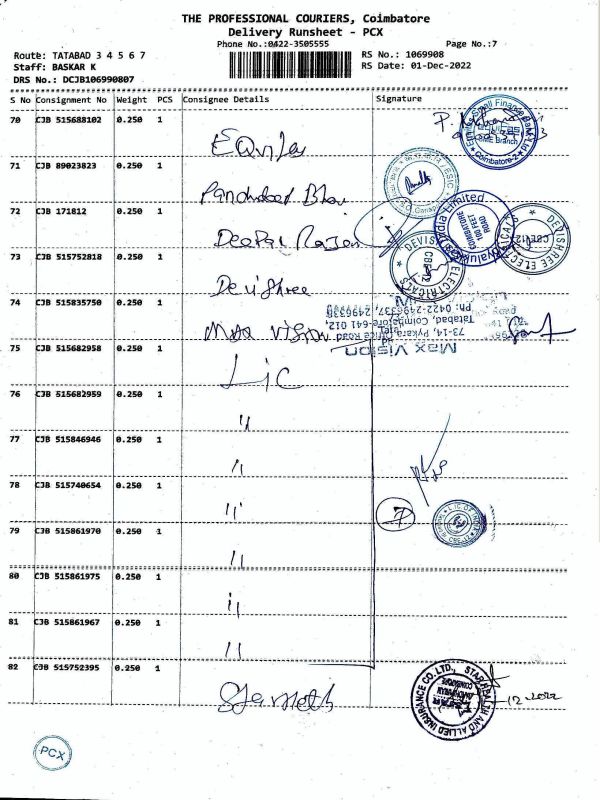 THE PROFESSIONAL COURIERS, Coimbatore
Delivery Runsheet - PCX
Phone No.:0422-3505555 Page No.:7
Route: TATABAD 3 4 5 6 7 RS No.: 1069908
Staff: BASKAR K RS Date: 01-Dec-2022
DRS No.: DCJB106990807
S No Consignment No Weight PCS Consignee Details Signature
70 CJB 515688102 0.250 1
71 CJB 89023823 0.250 1
72 CJB 171812 0.250 1
Deepak
73 CJB 515752818 0.250 1
Devishree
74 CJB 515835750 0.250 1
Max Vision
75 CJB 515682958 0.250 1
LIC
76 CJB 515682959 0.250 1
"
77 CJB 515846946 0.250 1
"
78 CJB 515740654 0.250 1
" 7
79 CJB 515861970 0.250 1
"
80 CJB 515861975 0.250 1
"
81 CJB 515861967 0.250 1
"
82 CJB 515752395 0.250 1
Small Finance Bank Ltd
Branch
Coimbatore-2
India Limited
COIMBATORE
100 FEET
ROAD
DEVISHREE ELECTRICALS
CBE-12
DEVISHREE ELECTRICALS
CBE-12
Max Vision
73-14, Pykara Office Road
Tatabad, Coimbatore-641 012.
Ph: 0422-2496337, 2496338
L.I.C. OF INDIA
STAR HEALTH AND ALLIED INSURANCE CO. LTD.,
-12-2022
PCX